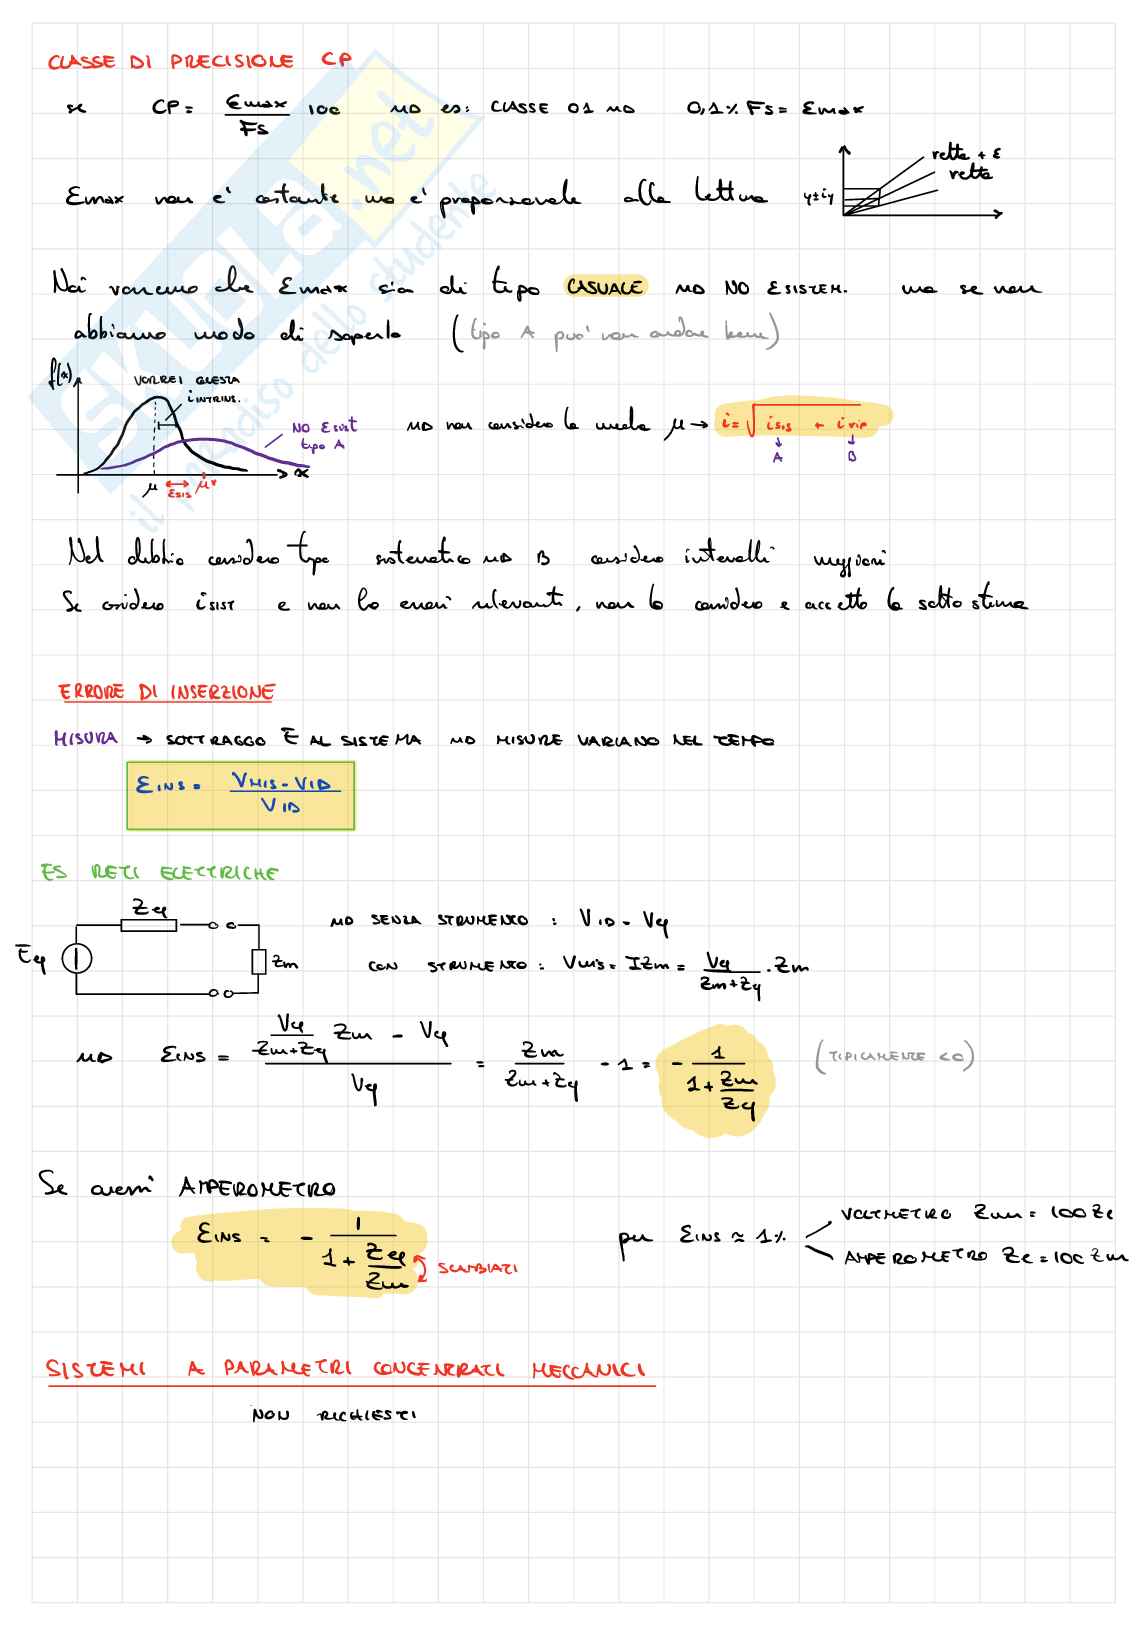 CLASSE DI PRECISIONE CP
se CP = εmax/Fs 100 → es: CLASSE 01 → 0,1% Fs = εmax
retta + ε
retta
εmax non è costante ma è proporzionale alla lettura y±iy
Noi vorremo che εmax sia di tipo CASUALE → NO ESISTEM. ma se non
abbiamo modo di saperlo (tipo A può non andare bene)
f(x) VORREI QUESTA
i INTRINS.
NO Esist
tipo A
→ non considero la media μ → i = √(i sis + i rip)
A B
x
μ εsis μ*
Nel dubbio considero tipo sistematico → B considero intervalli maggiori
Se considero i SIST e non ho errori rilevanti, non lo considero e accetto la sottostima
ERRORE DI INSERZIONE
MISURA → SOTTRAGGO E AL SISTEMA → MISURE VARIANO NEL TEMPO
εINS = (VMIS - VID)/VID
ES RETI ELETTRICHE
Zeq
→ SENZA STRUMENTO: VID = Veq
Eeq Zm
CON STRUMENTO: Vmis = IZm = Veq/(Zm+Zeq) · Zm
→ εINS = (Veq/(Zm+Zeq) Zm - Veq)/Veq = Zm/(Zm+Zeq) - 1 = - 1/(1 + Zm/Zeq) (TIPICAMENTE <0)
Se avessi AMPEROMETRO
εINS = - 1/(1 + Zeq/Zm) SCAMBIATI
per εINS ≈ 1%
VOLTMETRO Zm = 100 Ze
AMPEROMETRO Ze = 100 Zm
SISTEMI A PARAMETRI CONCENTRATI MECCANICI
NON RICHIESTI
SKUOLA.net
il paradiso dello studente